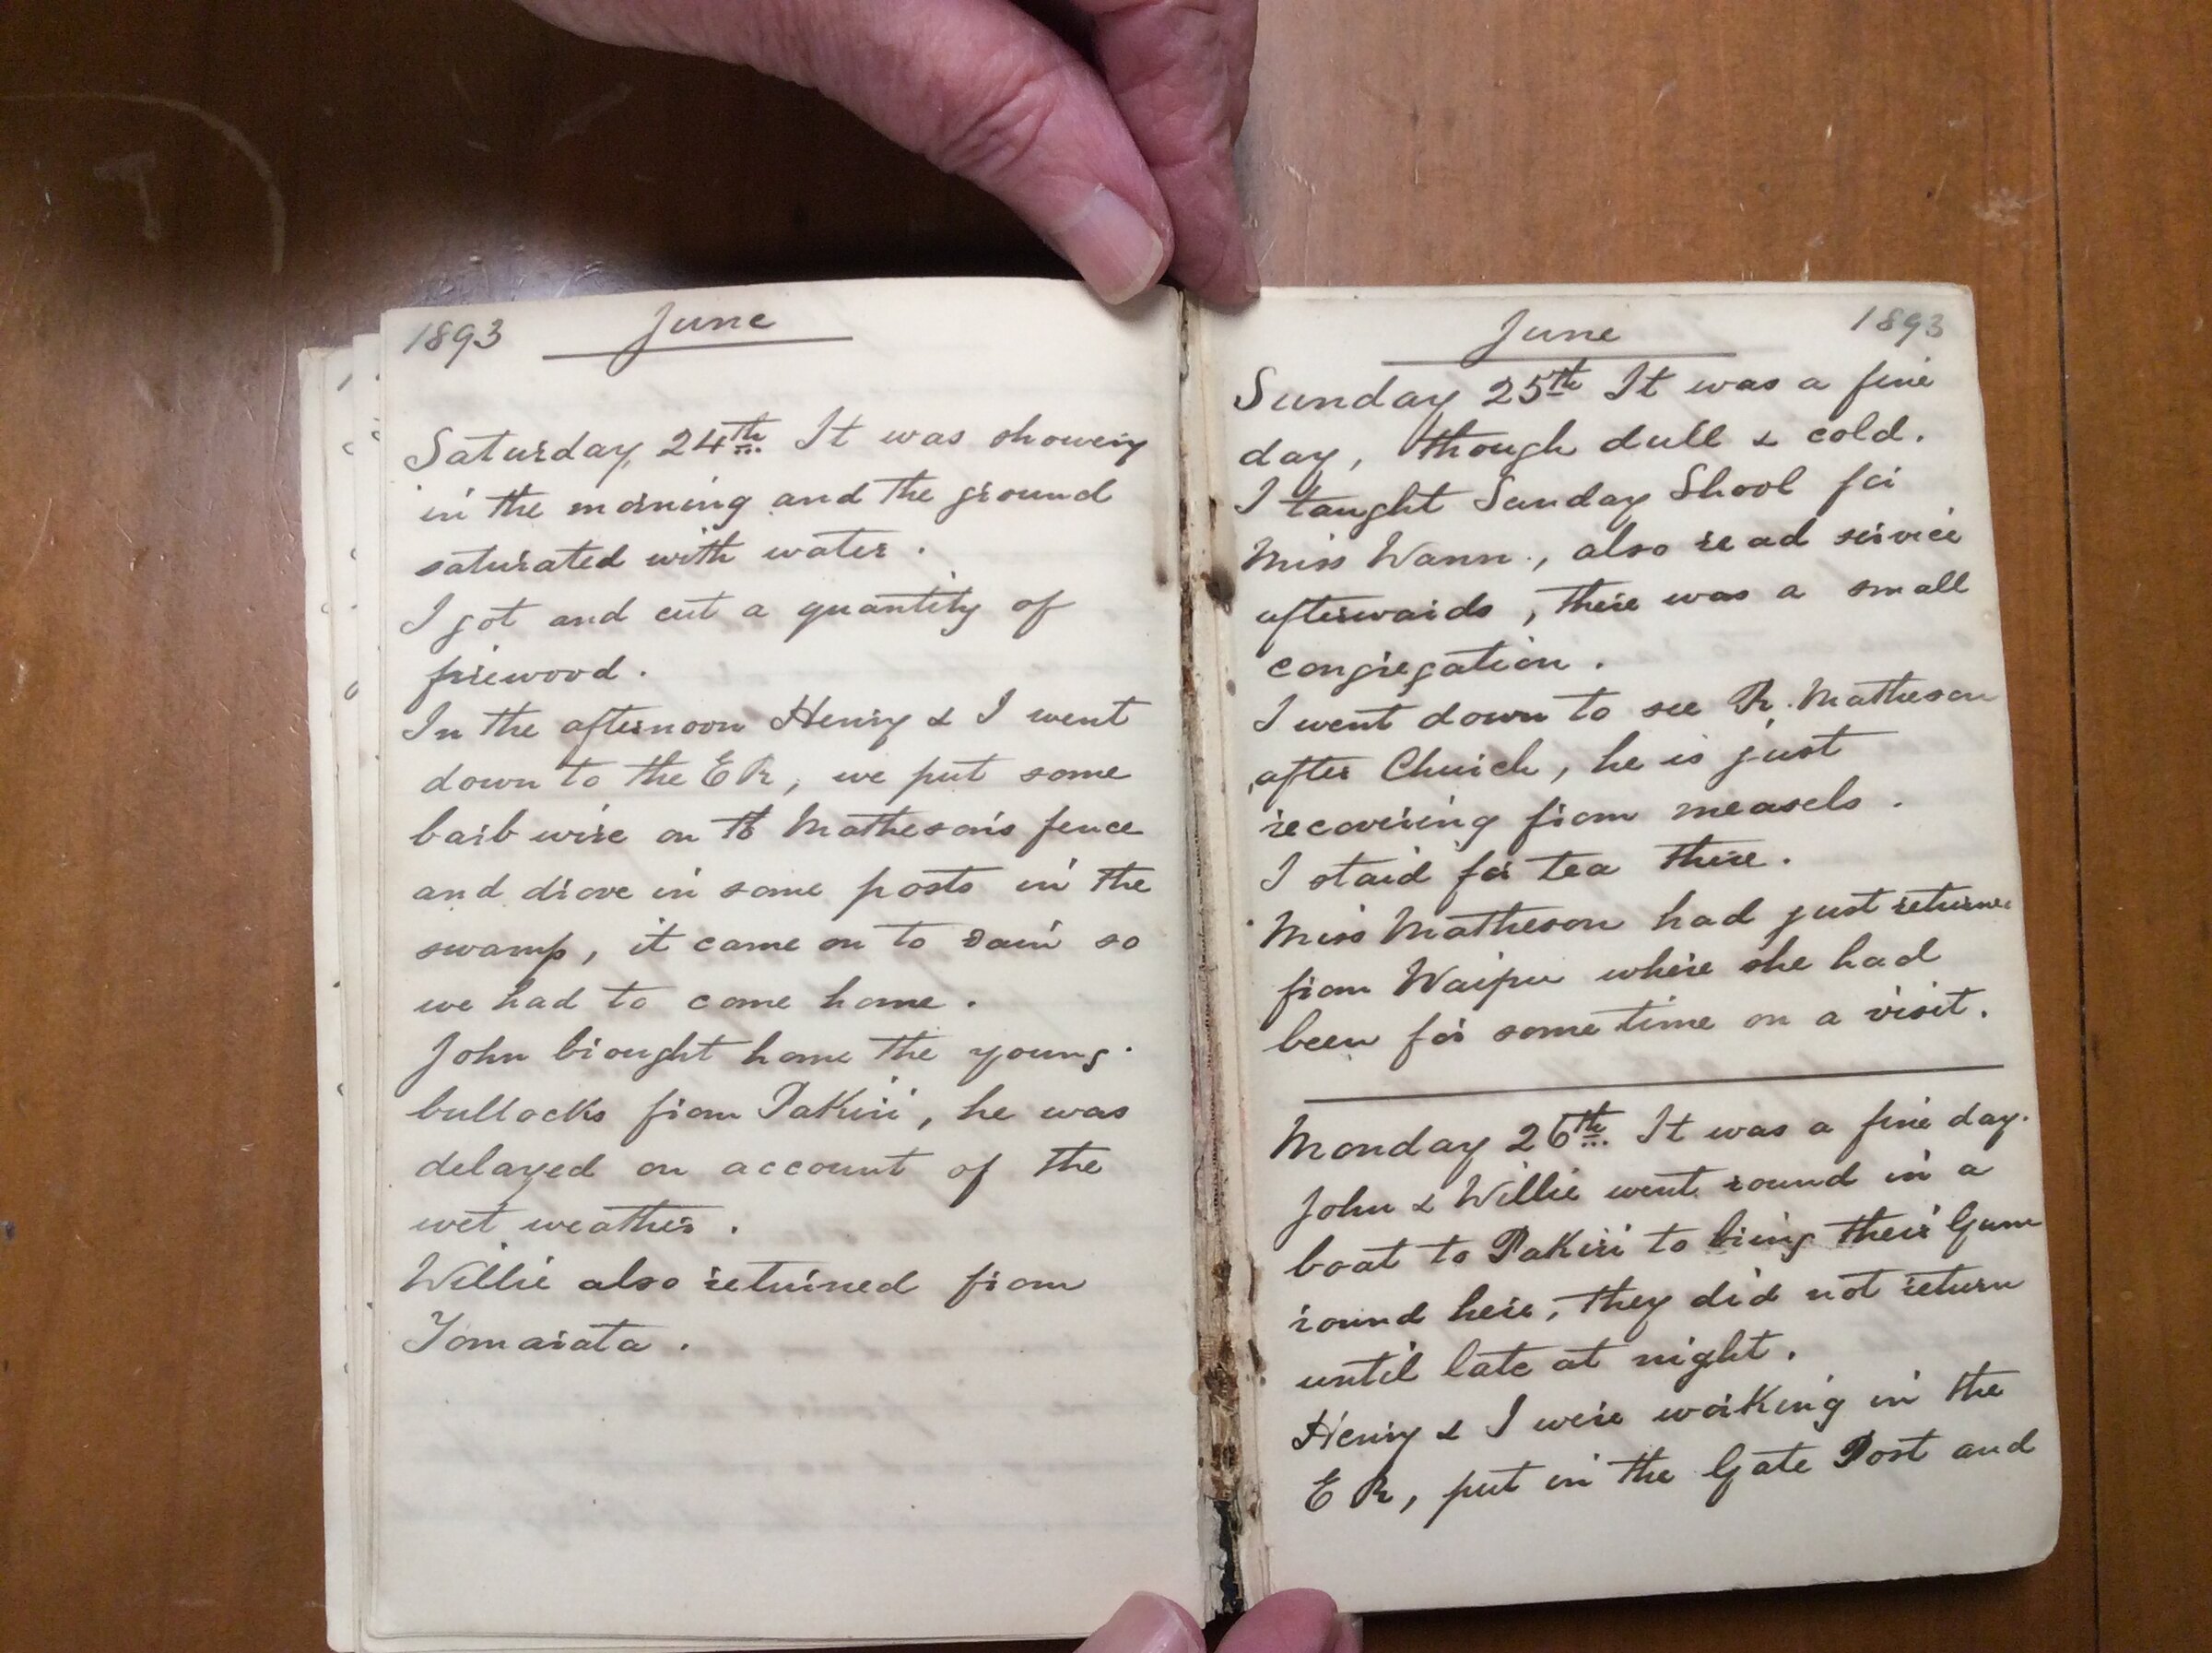 1893 June
Saturday 24th It was showery
in the morning and the ground
saturated with water.
I got and cut a quantity of
firewood.
In the afternoon Henry & I went
down to the E R, we put some
barb wire on Mathesons fence
and drove in some posts in the
swamp, it came on to rain so
we had to come home.
John brought home the young
bullocks from Pakiri, he was
delayed on account of the
wet weather.
Willie also returned from
Tomarata.
June 1893
Sunday 25th It was a fine
day, though dull & cold.
I taught Sunday Shool for
Miss Wann., also read service
afterwards, there was a small
congregation.
I went down to see R. Matheson
after Church, he is just
recovering from measels.
I staid for tea there.
Miss Matheson had just returne
from Waipu where she had
been for some time on a visit.
Monday 26th It was a fine day.
John & Willie went round in a
boat to Pakiri to bring their Gum
round here, they did not return
until late at night.
Henry & I were working in the
E R, put in the Gate Post and